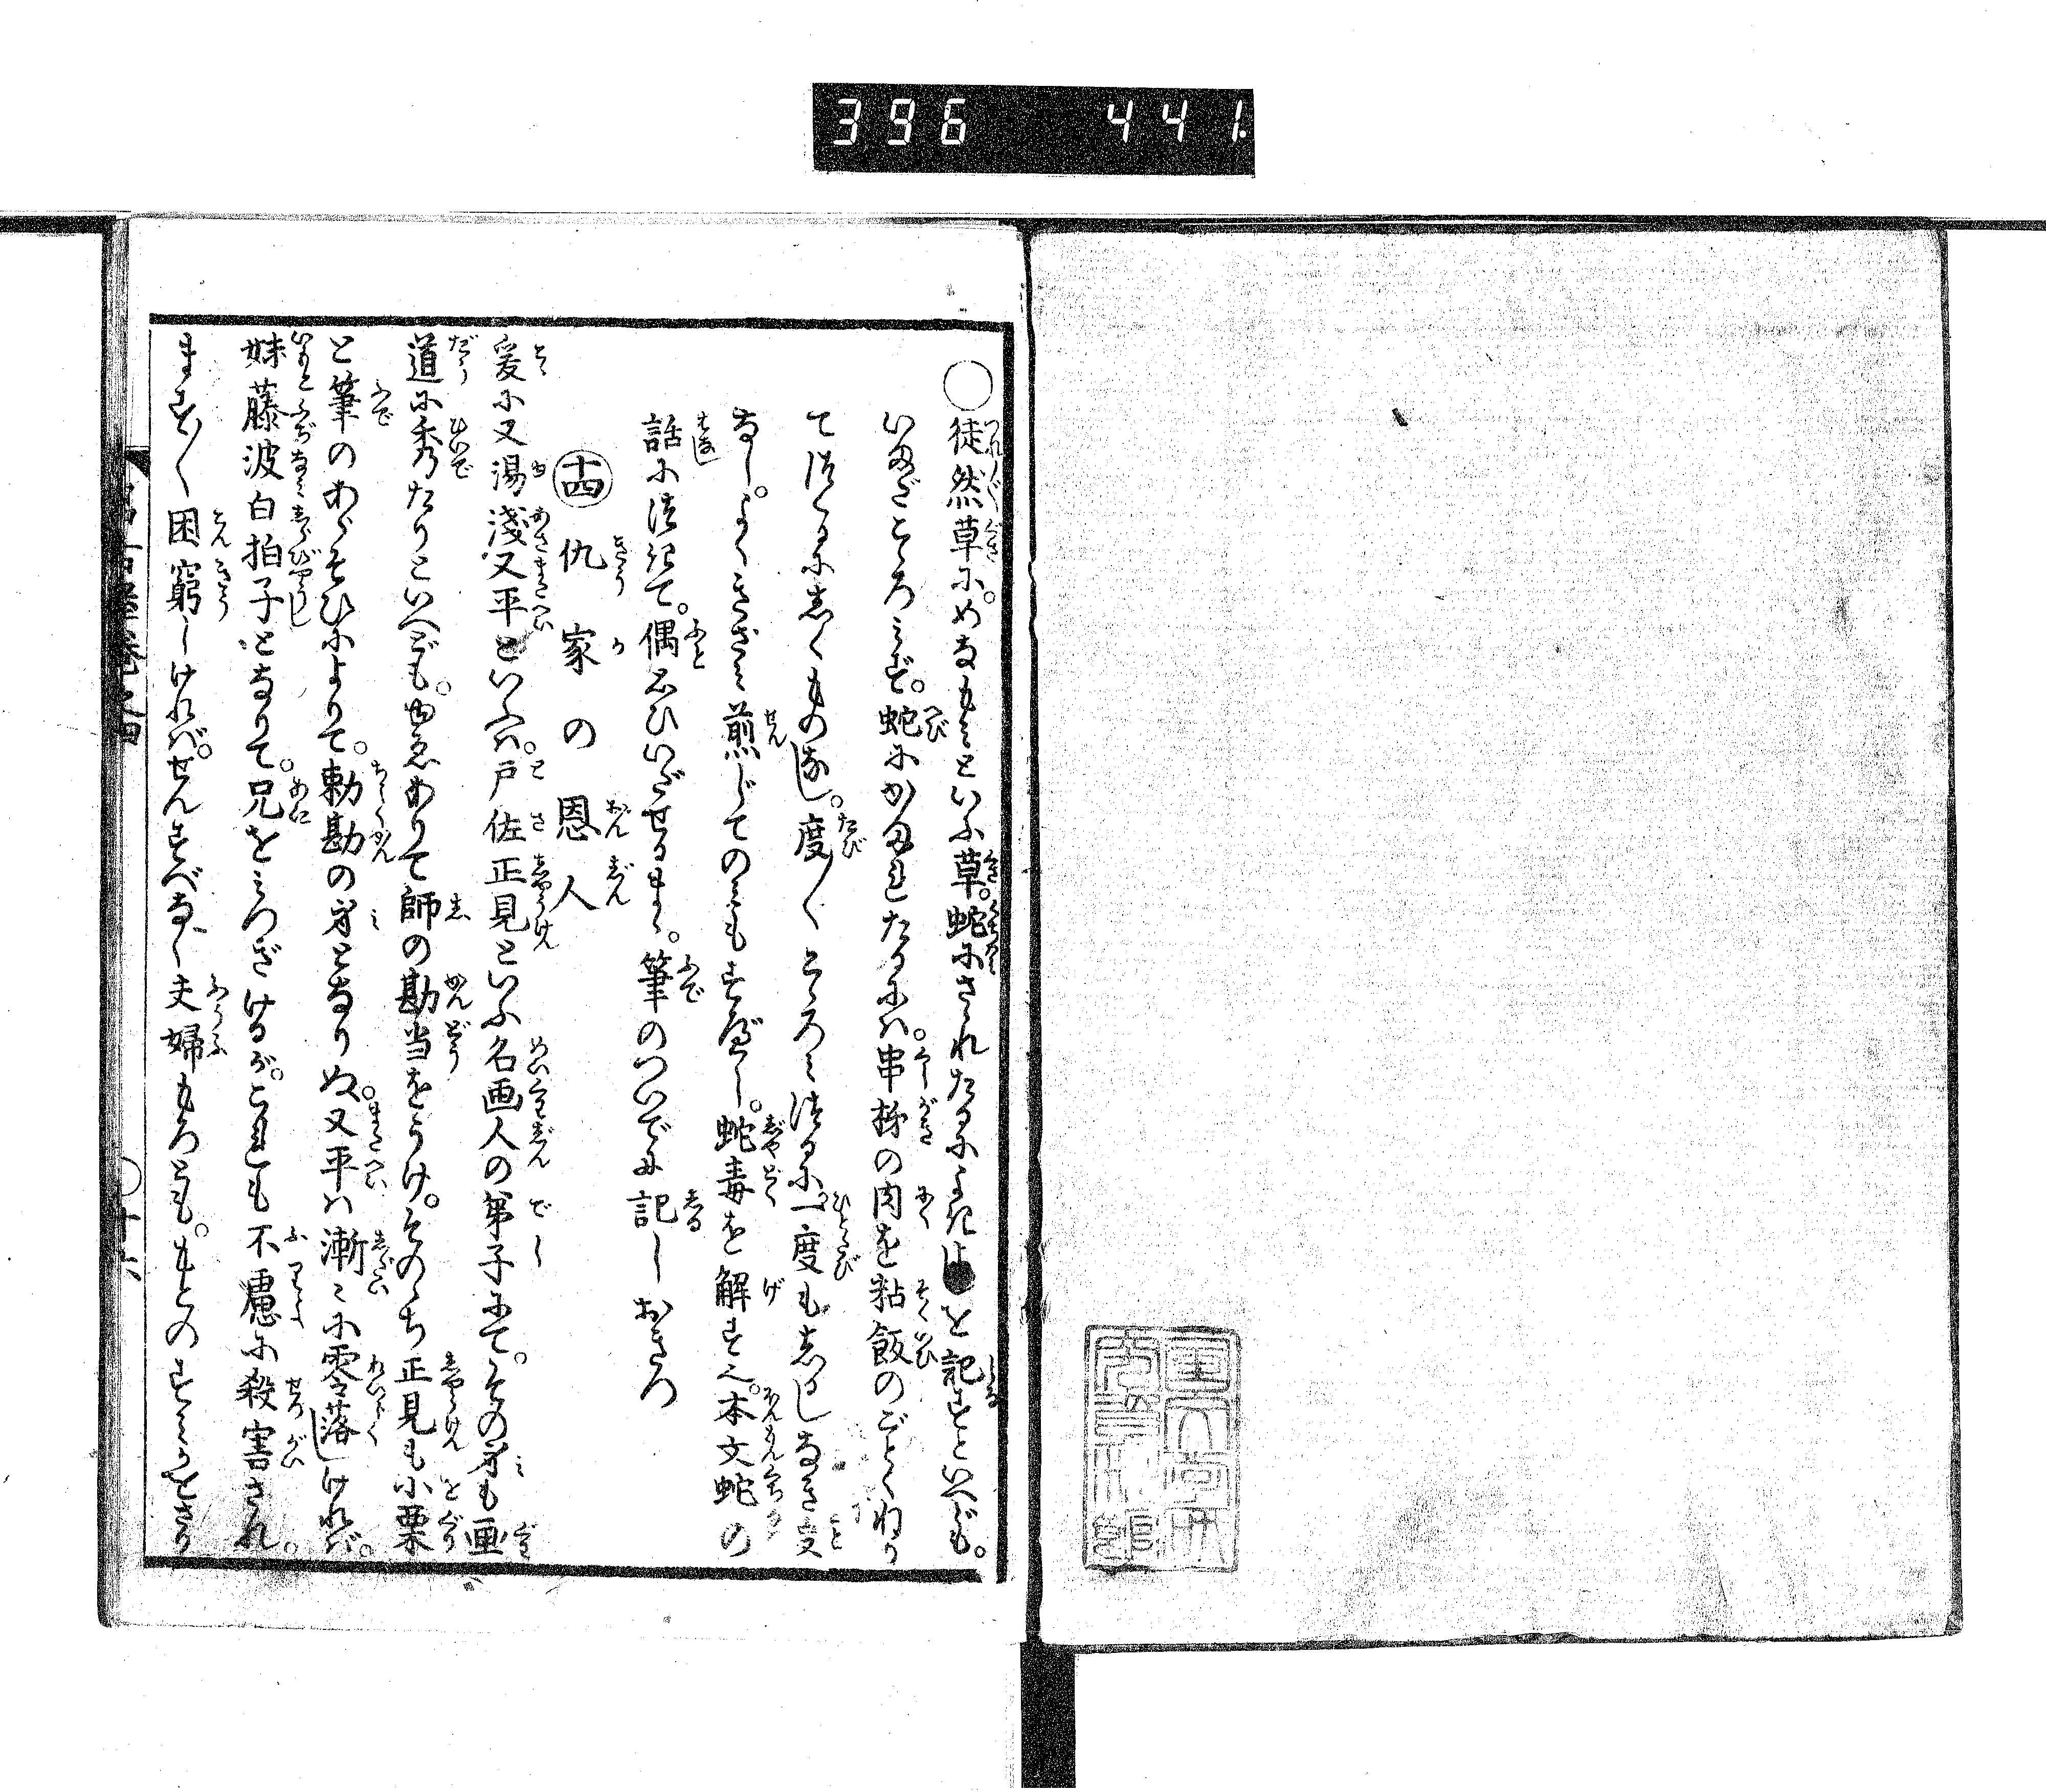 396 441
○徒然草に。めなもみといふ草。蛇にさゝれたるによきよしを記すといへども。
いまだこゝろみず。蛇にかまれたるには。串柹の肉を粘飯のごとくねり
てつくるにしくものなし。度〳〵こゝろみつるに一度もしるしなき事
なし。よくきざみ煎じてのみもすべし。蛇毒を解す也。本文蛇の
話につきて。偶思ひいだせるまゝ。筆のついでに記しおきつ
十四 仇家の恩人
爰に又湯浅又平といふは。戸佐正見といふ名画人の第子にて。その身も画
道に秀たりといへども。ゆゑありて師の勘当をうけ。そのゝち正見も小栗
と筆のあらそひによりて。勅勘の身となりぬ。又平は漸々に零落しければ。
妹藤波白拍子となりて。兄をみつぎけるが。これも不慮に殺害され。
ます〳〵困窮しければ。せんすべなく夫婦もろとも。もとのすみかをさり